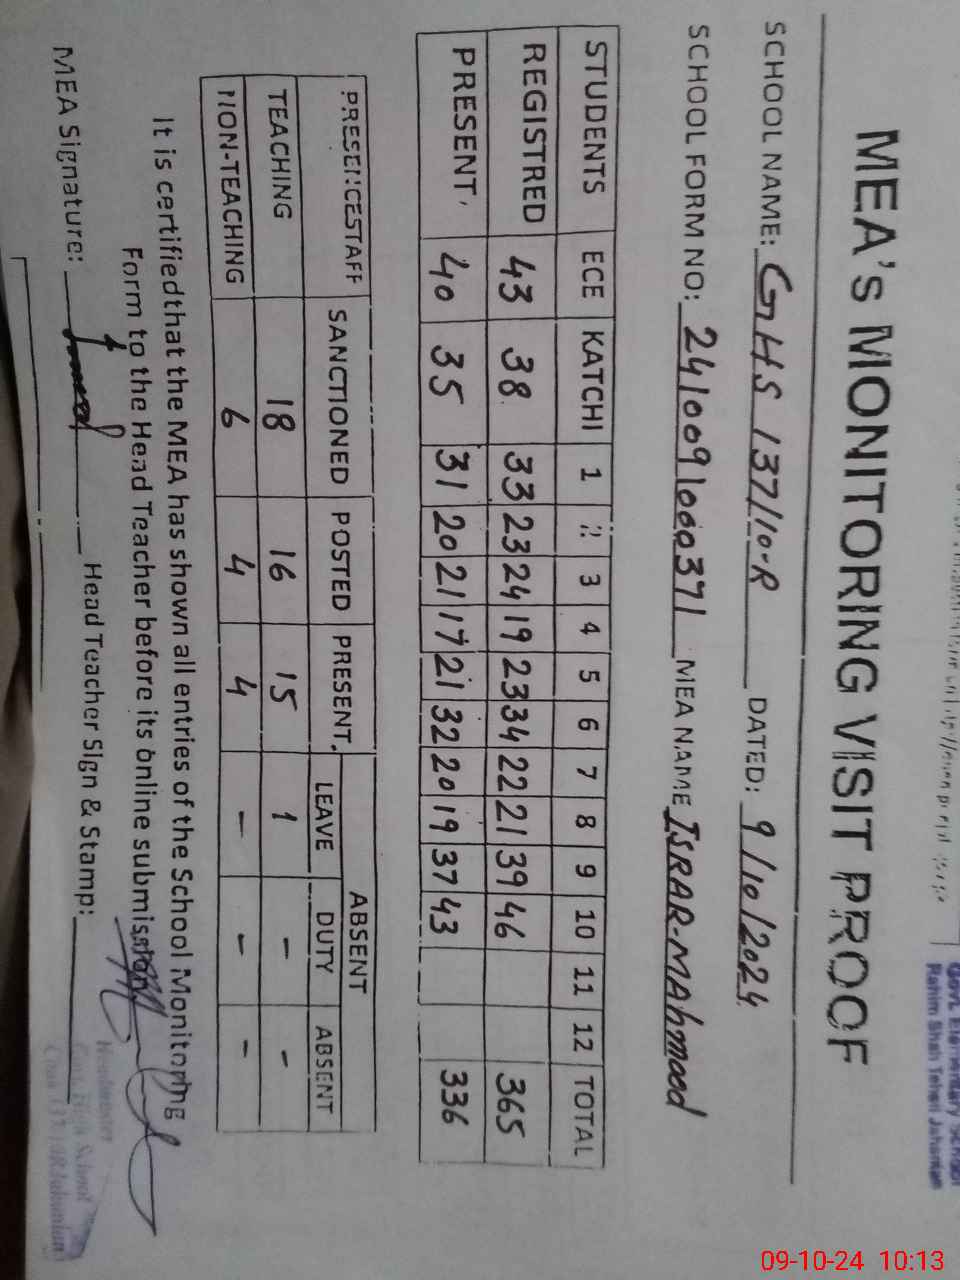 Govt. Elementary School
Rahim Shah Tehsil Jahanian
MEA's MONITORING VISIT PROOF
SCHOOL NAME: GHS 137/10-R DATED: 9/10/2024
SCHOOL FORM NO: 241009100371 MEA NAME ISRAR-MAhmood
STUDENTS ECE KATCHI 1 2 3 4 5 6 7 8 9 10 11 12 TOTAL
REGISTRED 43 38 33 23 24 19 23 34 22 21 39 46 365
PRESENT 40 35 31 20 21 17 21 32 20 19 37 43 336
PRESENCESTAFF SANCTIONED POSTED PRESENT ABSENT
LEAVE DUTY ABSENT
TEACHING 18 16 15 1 - -
NON-TEACHING 6 4 4 - - -
It is certified that the MEA has shown all entries of the School Monitoring
Form to the Head Teacher before its online submission.
MEA Signature: Head Teacher Sign & Stamp:
Headmaster
Govt. High School
Chak 137/10R Jahanian
09-10-24 10:13